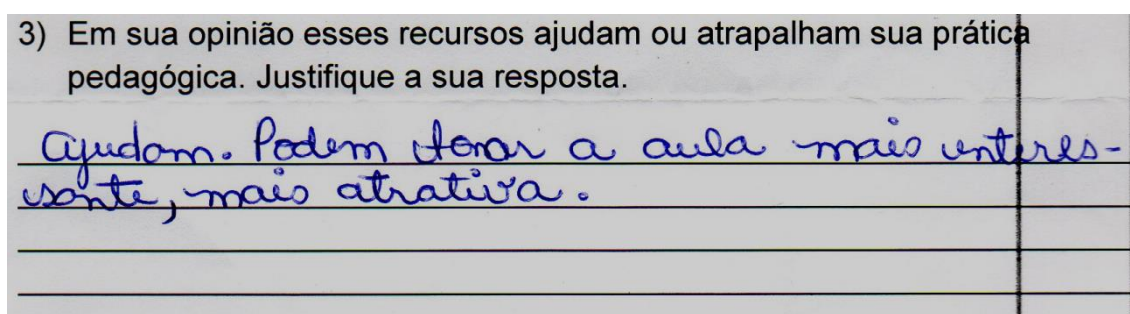 3) Em sua opinião esses recursos ajudam ou atrapalham sua prática
pedagógica. Justifique a sua resposta.
Ajudam. Podem a aula mais interes-
sante, mais atrativa.